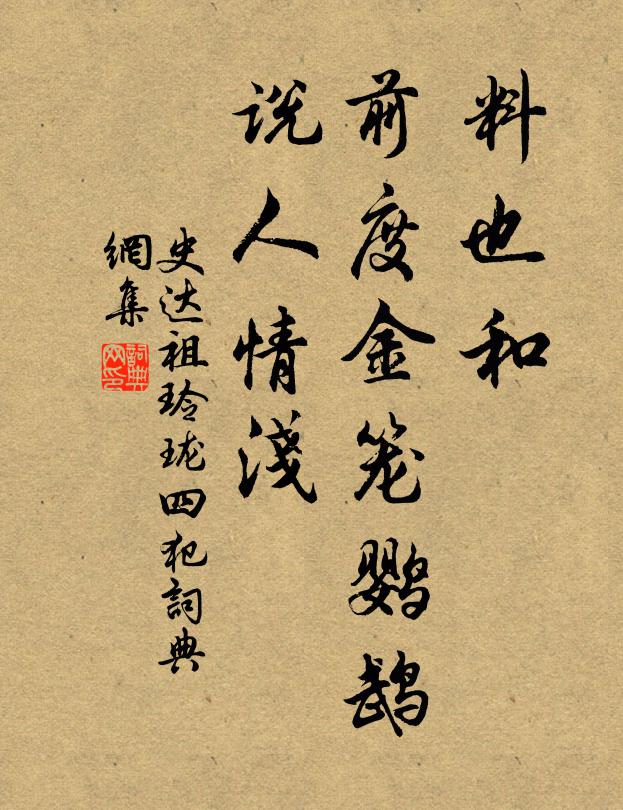 料也和
前度金笼鹦鹉
说人情浅
史达祖玲珑四犯詞典
網集
詞典
网印